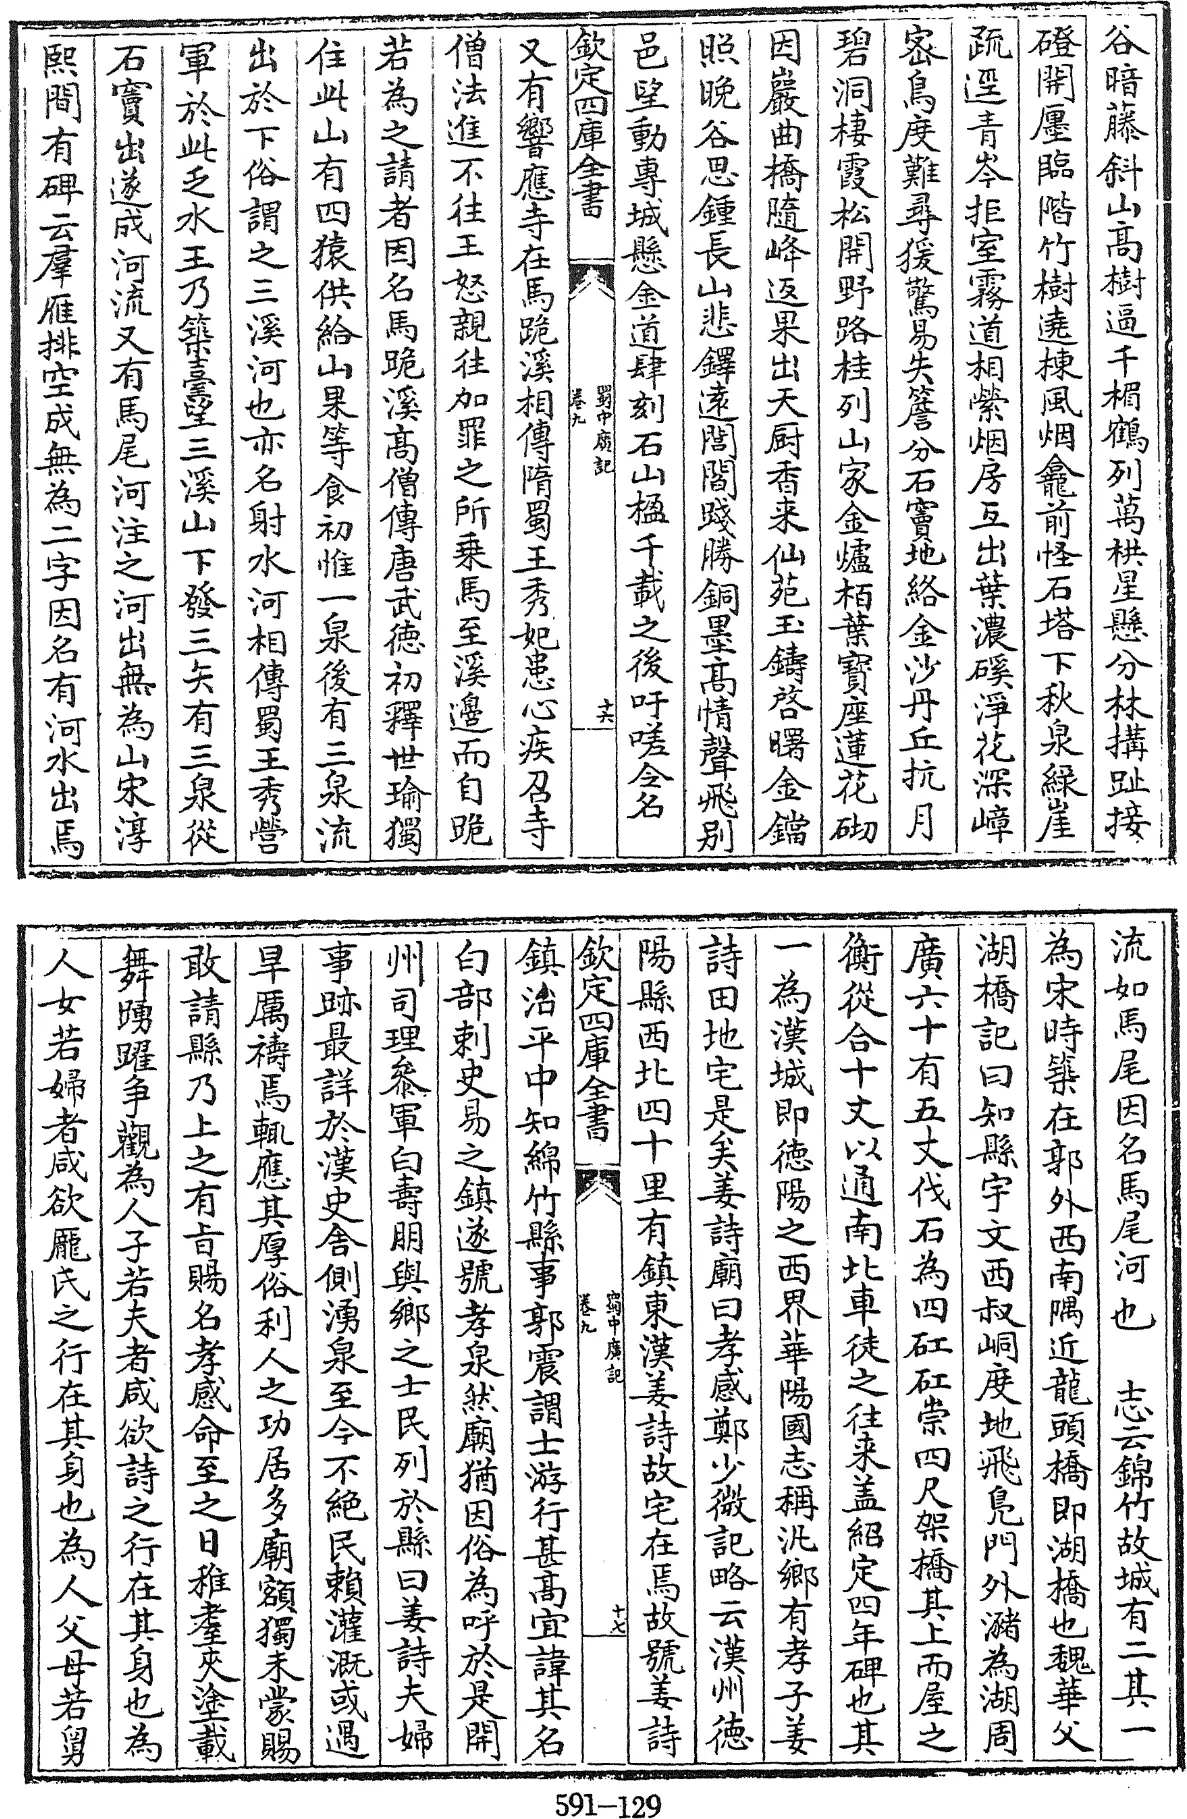 谷暗藤斜山高樹逼千楣鶴列萬栱星懸分林搆趾接
磴開㕓臨階竹樹遶棟風烟龕前怪石塔下秋泉緑崖
疏逕青岑拒室霧道相縈烟房互出葉濃磎淨花深嶂
宻鳥度難尋猨驚易失簷分石竇地絡金沙丹丘抗月
碧洞棲霞松開野路桂列山家金爐栢葉寳座蓮花砌
因巖曲橋隨峰返果出天厨香来仙苑玉鑄啓曙金鐺
照晚谷思鍾長山悲鐸遠閭閻踐勝銅墨髙情聲飛别
邑堅動專城懸金道肆刻石山楹千載之後吁嗟令名
欽定四庫全書
蜀中廣記
卷九
十六
又有響應寺在馬跪溪相傳隋蜀王秀妃患心疾召寺
僧法進不往王怒親往加罪之所乗馬至溪邊而自跪
若為之請者因名馬跪溪髙僧傳唐武徳初釋世瑜獨
住此山有四猿供給山果等食初惟一泉後有三泉流
出於下俗謂之三溪河也亦名射水河相傳蜀王秀營
軍於此乏水王乃築臺望三溪山下發三矢有三泉從
石竇出遂成河流又有馬尾河注之河出無為山宋淳
熙間有碑云羣雁排空成無為二字因名有河水出焉
流如馬尾因名馬尾河也　志云錦竹故城有二其一
為宋時築在郭外西南隅近龍頭橋即湖橋也魏華父
湖橋記曰知縣宇文西叔峒度地飛凫門外瀦為湖周
廣六十有五丈伐石為四矼矼崇四尺架橋其上而屋之
衡從合十丈以通南北車徒之往来盖紹定四年碑也其
一為漢城即徳陽之西界華陽國志稱汎鄉有孝子姜
詩田地宅是矣姜詩廟曰孝感鄭少微記略云漢州徳
陽縣西北四十里有鎮東漢姜詩故宅在焉故號姜詩
欽定四庫全書
蜀中廣記
卷九
十七
鎮治平中知綿竹縣事郭震謂士游行甚髙宜諱其名
白部刺史易之鎮遂號孝泉然廟猶因俗為呼於是開
州司理叅軍白壽朋與鄉之士民列於縣曰姜詩夫婦
事跡最詳於漢史舍側湧泉至今不絶民賴灌溉或遇
旱厲禱焉輒應其厚俗利人之功居多廟額獨未蒙賜
敢請縣乃上之有㫖賜名孝感命至之日稚耋夾塗載
舞踴躍争觀為人子若夫者咸欲詩之行在其身也為
人女若婦者咸欲龎氏之行在其身也為人父母若舅
591—129